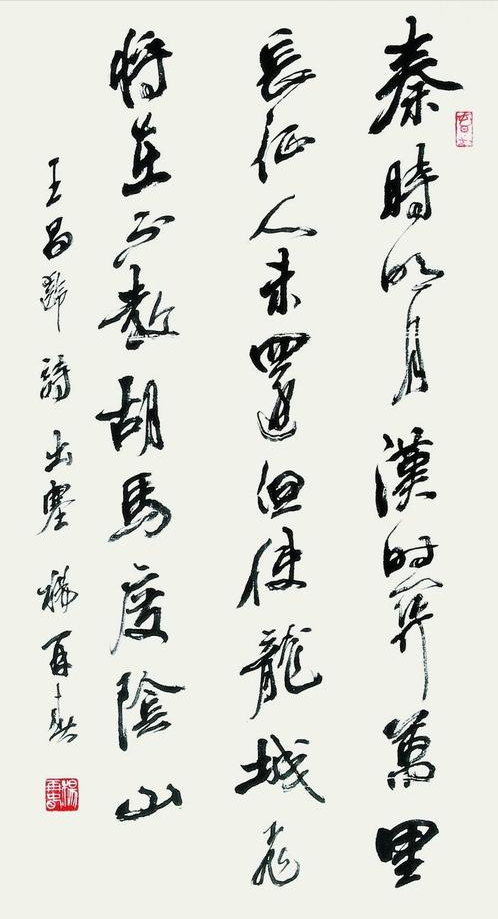 秦時明月漢时關萬里
長征人未還但使龍城飛
将在不教胡馬度陰山
王昌齡詩出塞 楊再春